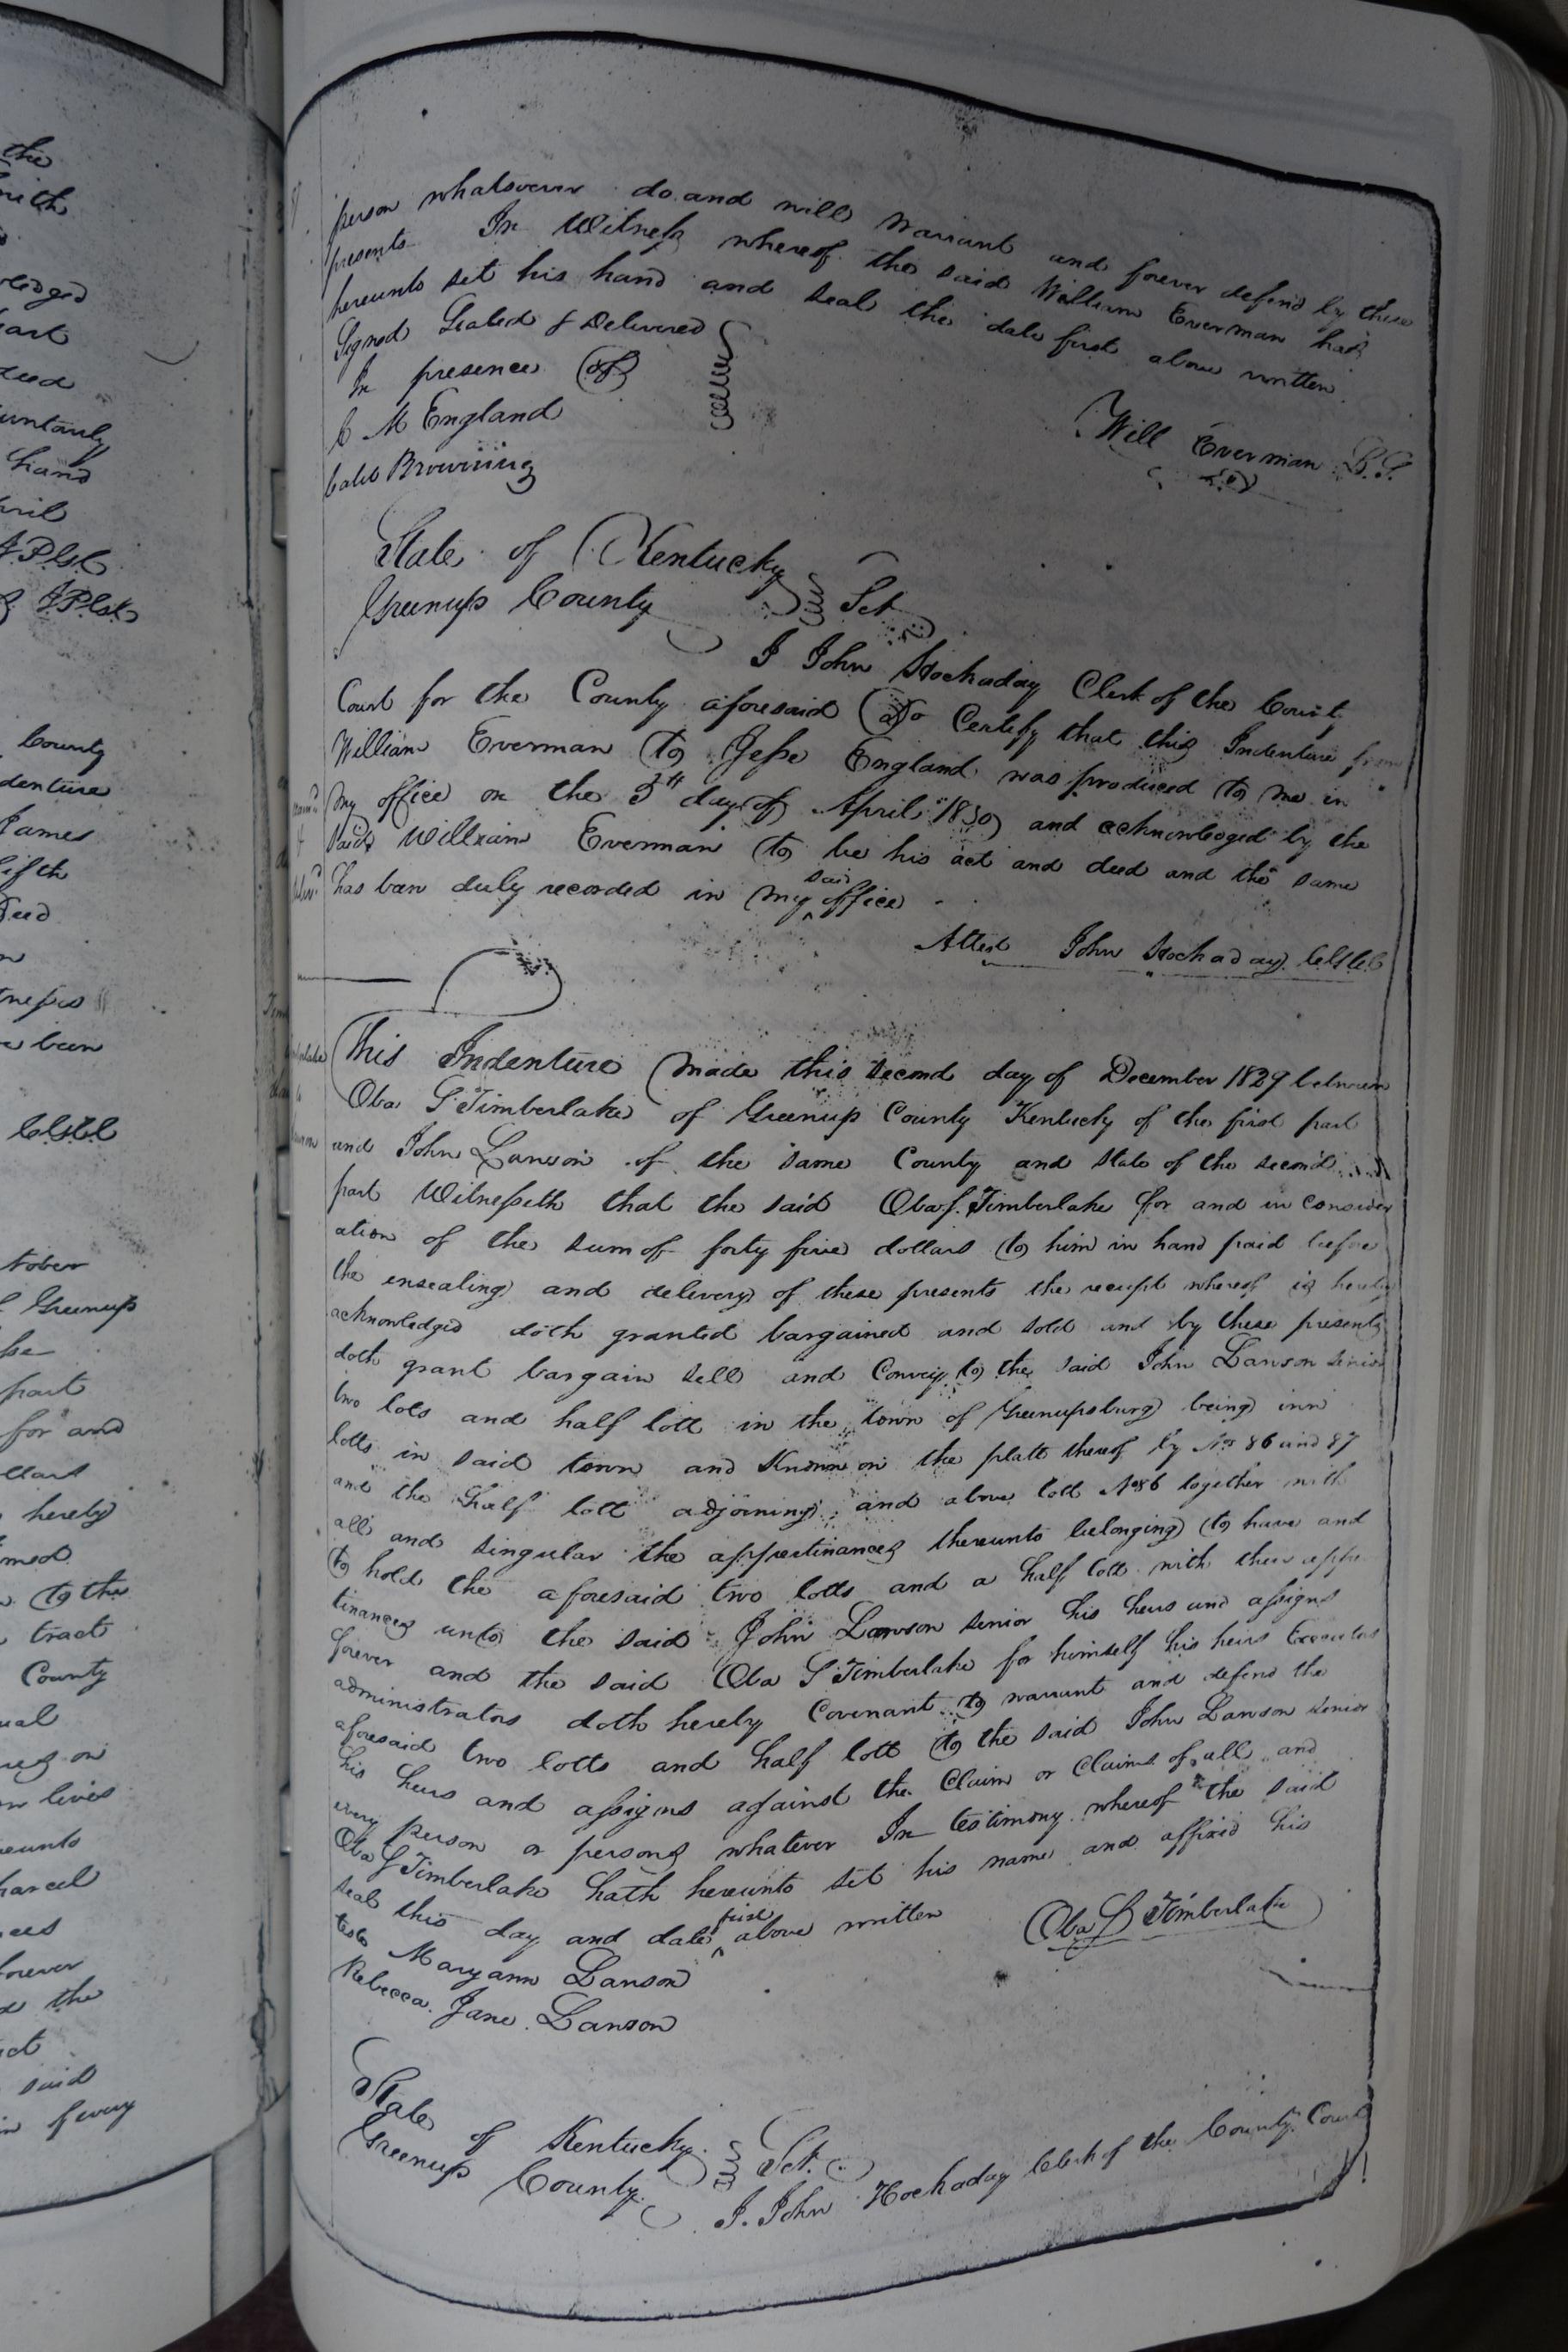 the
with
ledged
part
deed
untarily
hand
pril
JPLsk
& JPLsk
County
denture
James
fifth
Deed
been
ClSCC
tober
Greenup
part
for and
hereby
to the
tract
County
on
lives
eunto
parcel
forever
the
said
of every
person whatsoever do and will warrant and forever defend by these
presents In Witness whereof the said William Everman hath
hereunto set his hand and seal the date first above written
Signed Sealed & Delivered
In presence of
C M England
Caleb Browning
Will Everman L.S.
State of Kentucky
Greenup County Sct
I John Hockaday Clerk of the County
Court for the County aforesaid do Certify that this Indenture from
William Everman to Jesse England was produced to me in
my office on the 5th day of April 1830 and acknowledged by the
said William Everman to be his act and deed and the same
has ben duly recorded in my said office
Attest John Hockaday
This Indenture made this second day of December 1829 between
Oba S Timberlake of Greenup County Kentucky of the first part
and John Lawson of the same County and State of the second
part Witnesseth that the said Oba S. Timberlake for and in consider
ation of the sum of forty five dollars to him in hand paid before
the ensealing and delivery of these presents the receipt whereof is hereby
acknowledged doth granted bargained and sold and by these presents
doth grant bargain sell and Convey to the said John Lawson senior
two lots and half lott in the town of Greenupsburg being inn
lotts in said town and Known on the platt thereof by Nos 86 and 87
and the half lott adjoining and above lott No 86 together with
all and singular the appertinances thereunto belonging to have and
to hold the aforesaid two lotts and a half lott with their appu
tinances unto the said John Lawson senior his heirs and assigns
forever and the said Oba S Timberlake for himself his heirs Executors
administrators doth hereby Covenant to warrant and defend the
aforesaid two lotts and half lott to the said John Lawson senior
his heirs and assigns against the Claim or Claims of all and
every person or persons whatever In testimony whereof the said
Oba S Timberlake hath hereunto set his name and affixed his
seal this day and date first above written
Oba S Timberlake
teste Maryann Lawson
Rebecca Jane Lawson
State of Kentucky
Greenup County Sct.
I. John Hockaday Clerk of the County Court